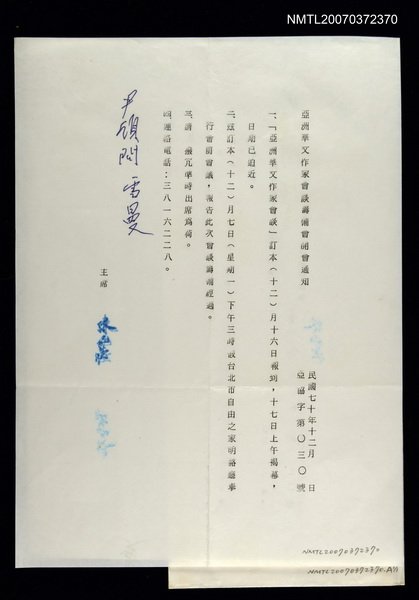 NMTL20070372370
亞洲華文作家會談籌備會開會通知
民國七十年十二月 日
亞協字第〇三〇號
一、「亞洲華文作家會談」訂本(十二)月十六日報到,十七日上午揭幕,
日期已迫近。
二、茲訂本(十二)月七日(星期一)下午三時假台北市自由之家明誦廳舉
行會前會議,報告此次會談籌備經過。
三、請 撥冗準時出席為荷。
四、連絡電話:三八一六二二八。
尹顧問雪曼
主席
NMTL20070372370
NMTL20070372370.A??